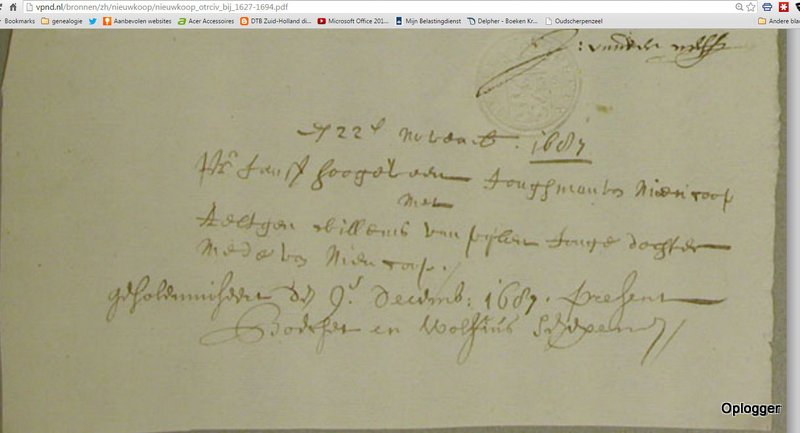 vpnd.nl/bronnen/zh/nieuwkoop/nieuwkoop_otrciv_bij_1627-1694.pdf
Bookmarks genealogie Aanbevolen websites Acer Accessoires DTB Zuid-Holland di... Microsoft Office 201... Mijn Belastingdienst Delpher - Boeken Kr... Oudscherpenzeel Andere bla
22 novemb. 1687
Jansz hoogeveen Jonghman van Niencoop
Met
Aeltgen Willems van pijlen Jonge dochter
Mede van Niencoop
gesolemniseert den 9 Decemb: 1687. Present
en Wolfius Schepenen
Oplogger